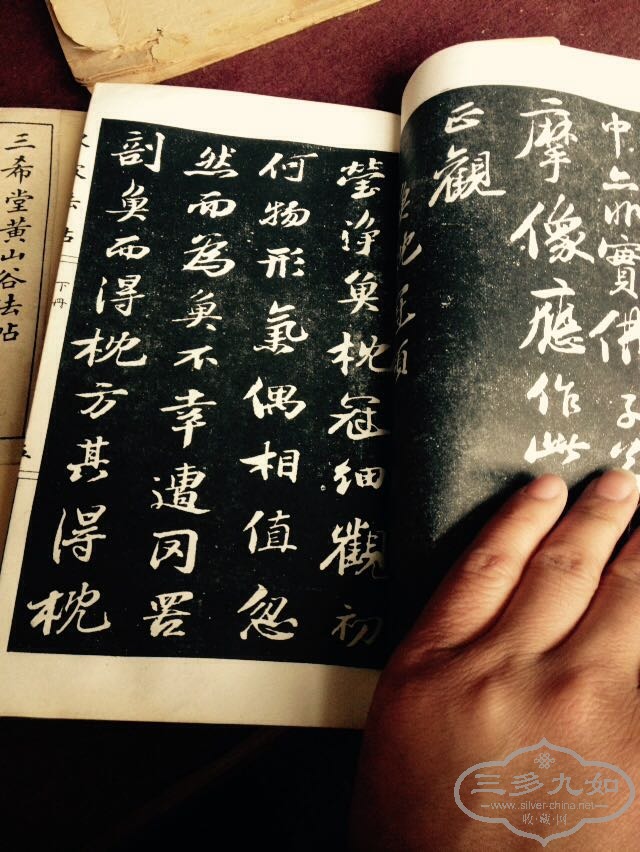 中亦非實佛子
摩像應作此
正觀
瑩淨魚枕冠細觀初
何物形氣偶相值忽
然而為魚不幸遭罔罟
剖魚而得枕方其得枕
法帖
下冊
三希堂黃山谷法帖
三多九如
www.silver-china.net
收·藏·网